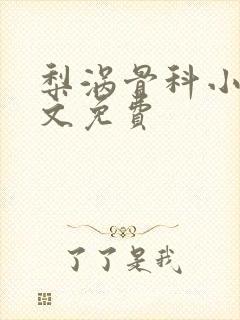 梨涡骨科小
文免費
了了是我